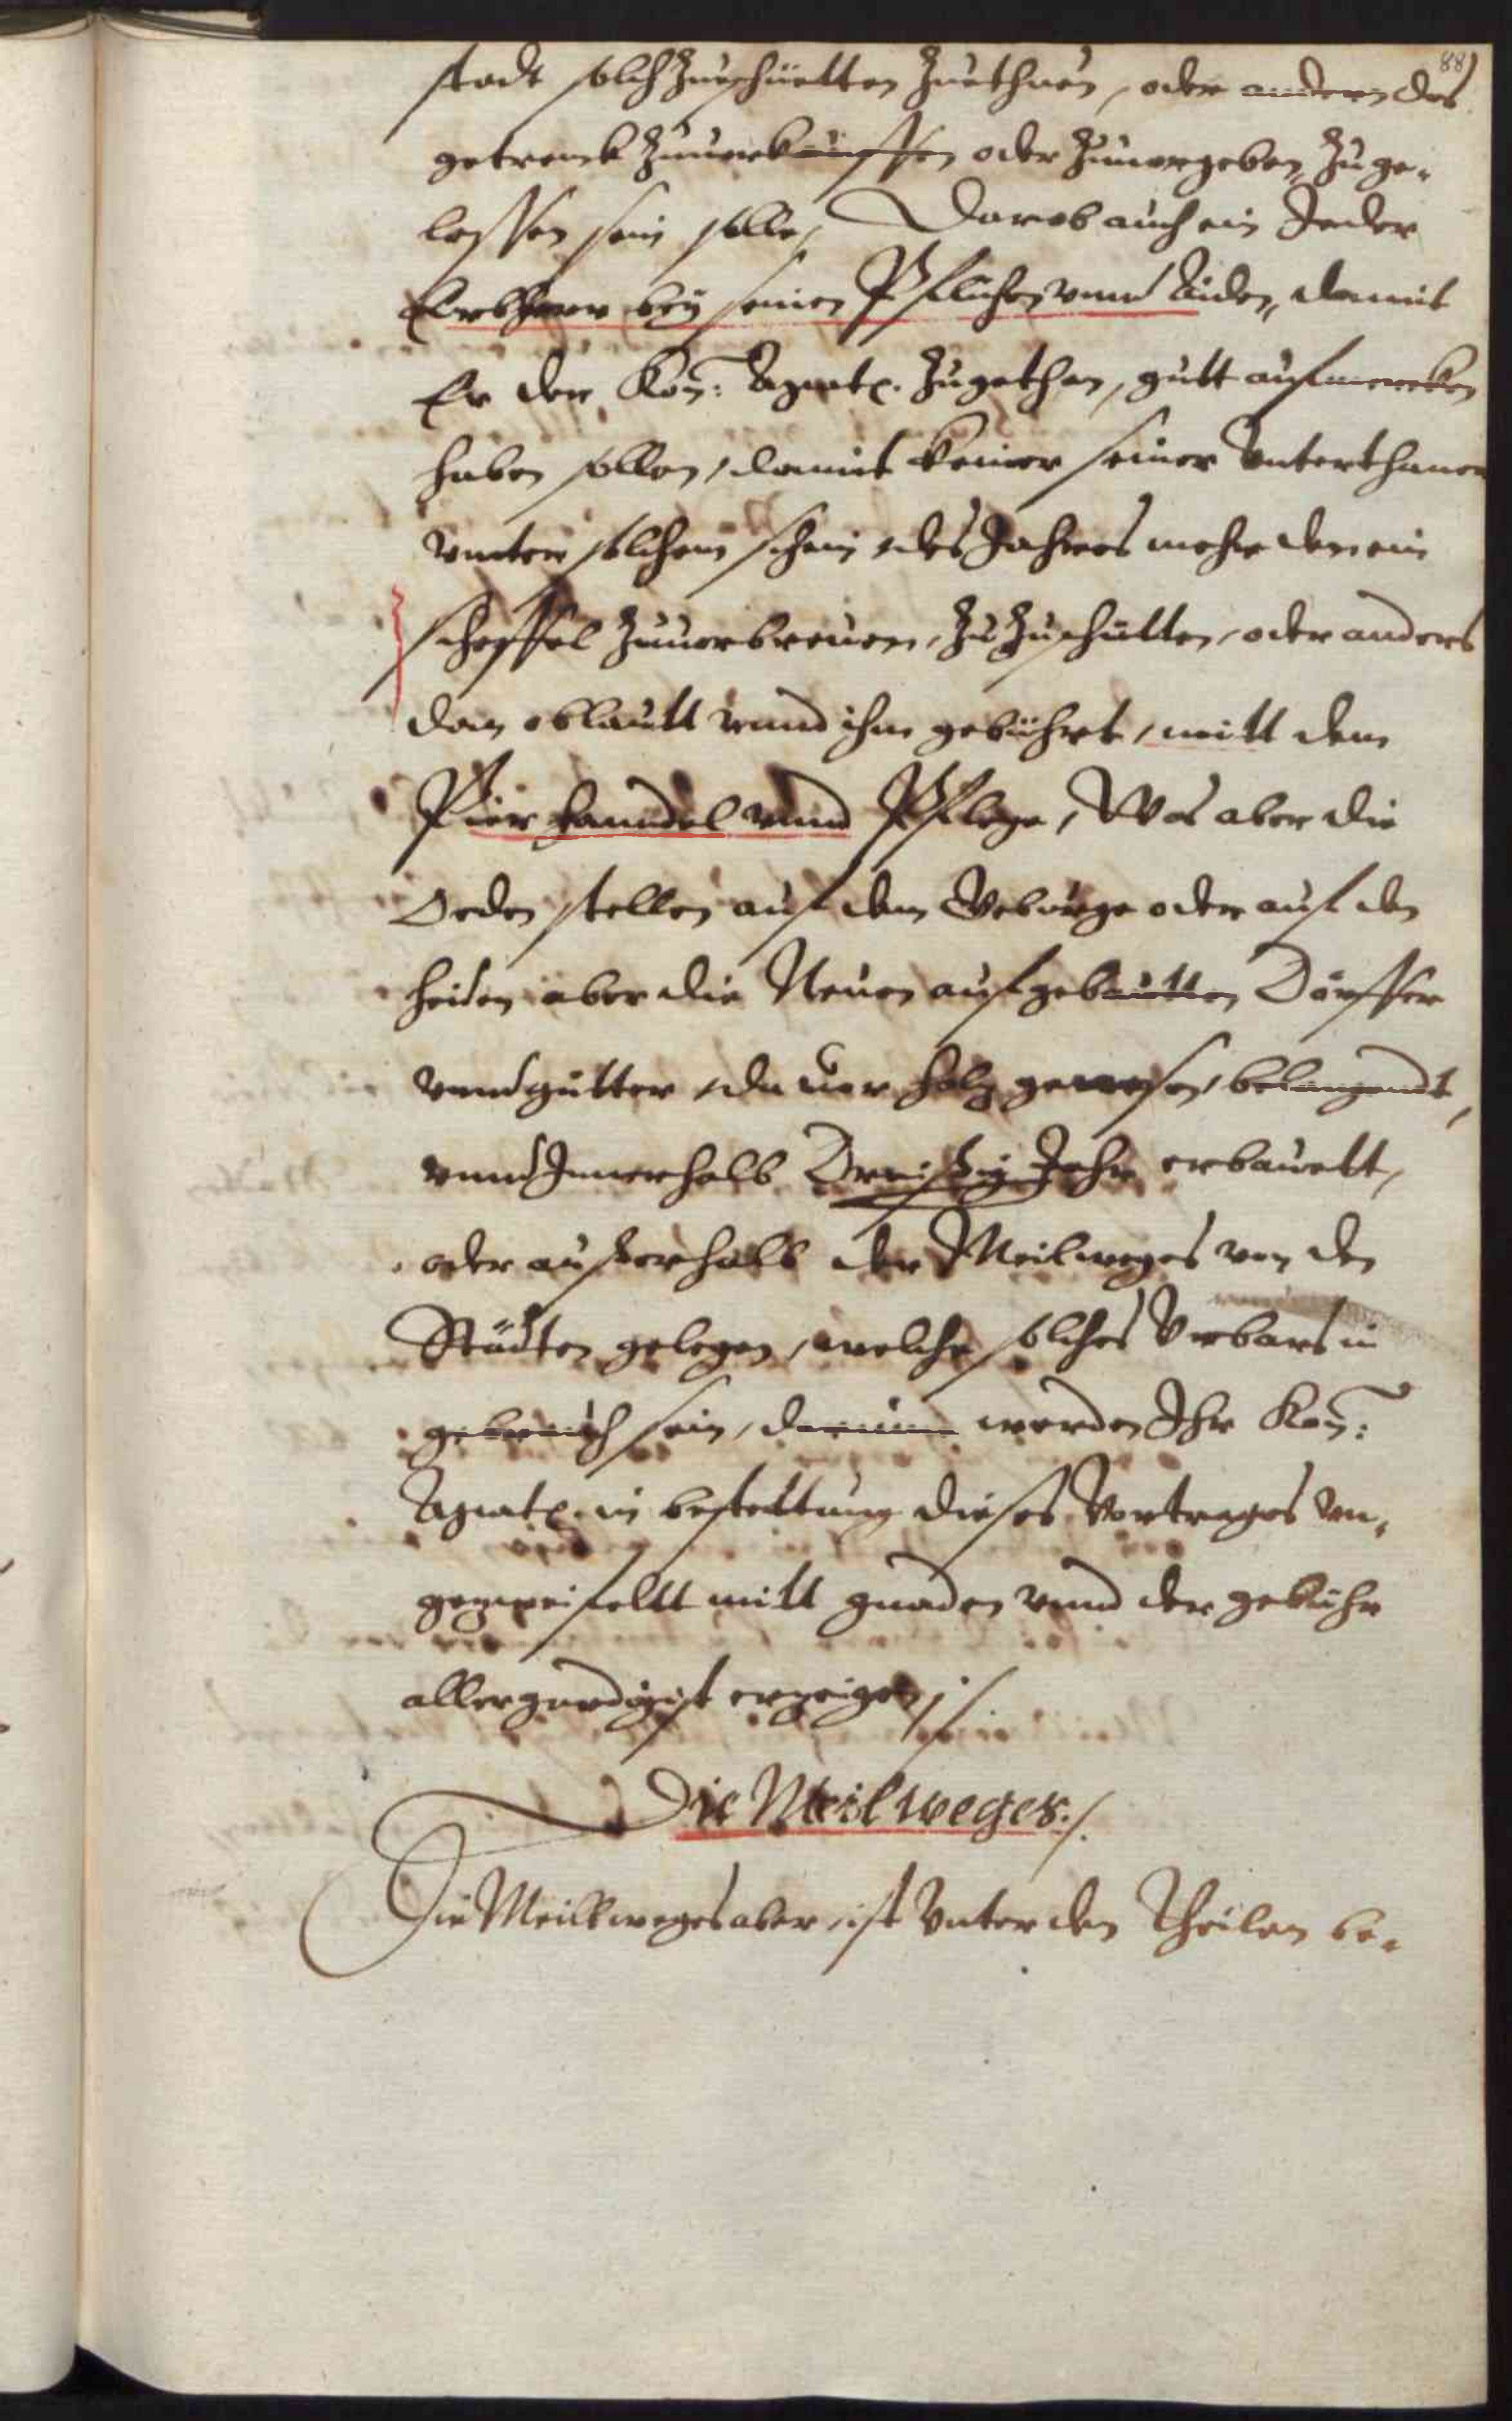 88
stadt solch Zuschüetten Zuethuen, oder anderen das
getrenck Zuuerkauffen oder Zuuergeben, Zu ge-
lassen sein solle, Darob auch ein Jeder
Erbherr bey seinen Pflichten vnnd Aiden, damit
Er der Kay: Mayt: Zugethan, gutt aufmercken
haben sollen, damit keiner seiner Vnterthanen
vnnter solchem schein des Jahres mehr den ein
scheffel Zuuerbreuen, Zu Zuschütten, oder anders
dan oblautt vnnd ihm gebührt, mitt dem
Bier handel vnnd Pflege, Was aber die
Oeden stellen auf dem Geburge oder auf den
heiden aber die Neuen aufgebautten Dörffer
vnnd gütter, da vor holz gewesen, belangendt,
vnnd Innerhalb Dreissig Jahr erbauett,
oder ausserhalb der Meilweges von den
Städten gelegen, welche solches Vrbars in
gebrauch sein, darinn werden Ihr Kay:
Mayt: in bestettung dieses Vortrages vn-
gezweifeltt mitt gnaden vnnd der gebühr
allergnedigist erzeigen ./.
Die Meilweges ./.
Die Meillweges aber, ist Vnter den Theilen be-